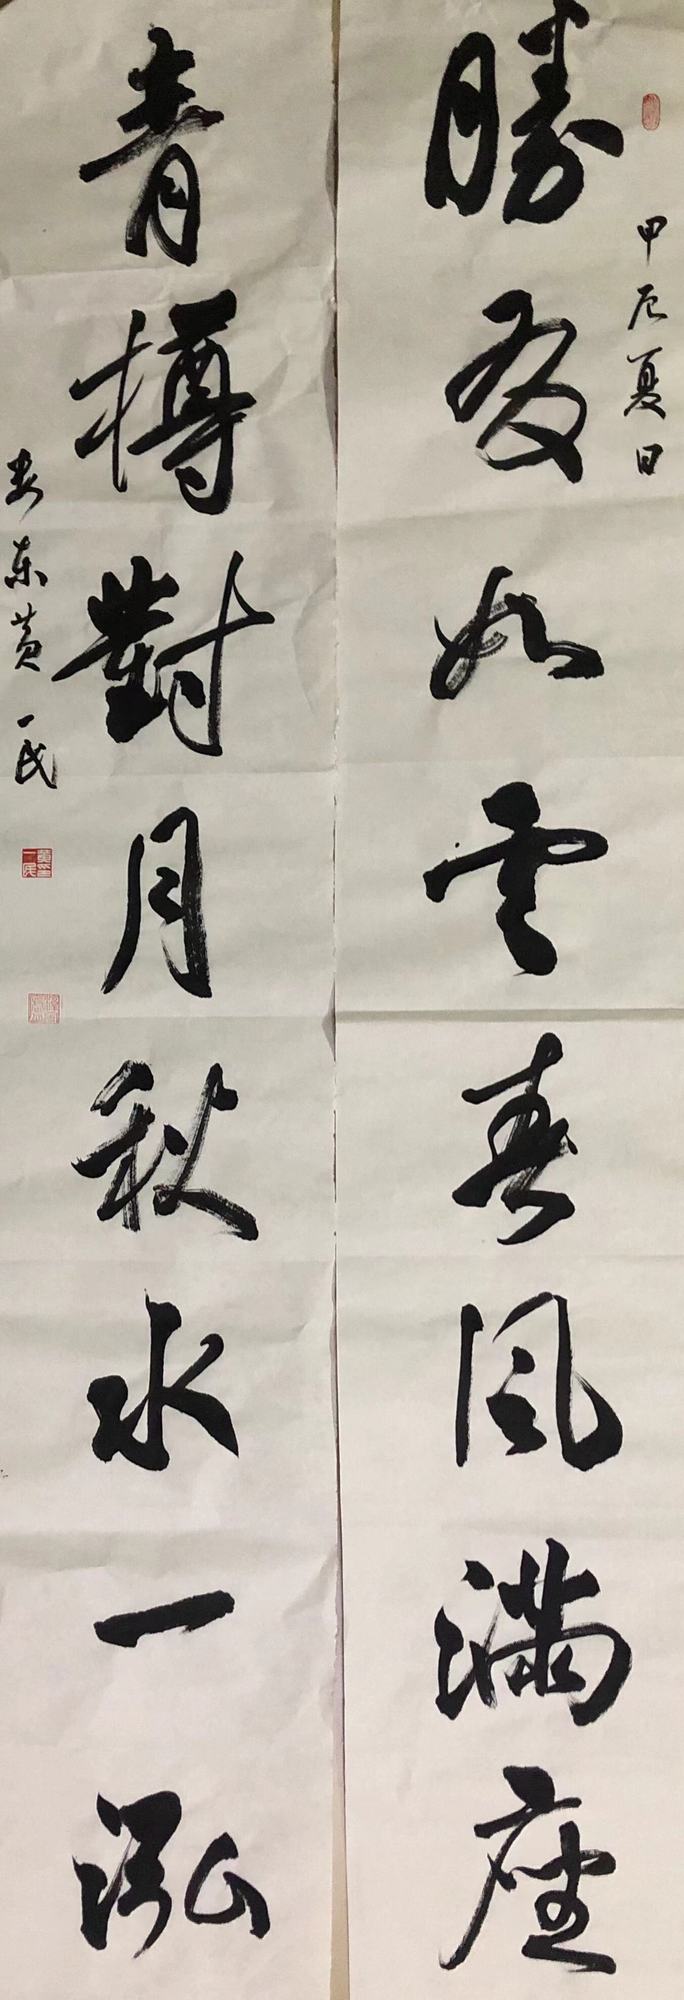 甲辰夏日
勝友如雲春風滿座
青樽對月秋水一泓
娄东黄一民